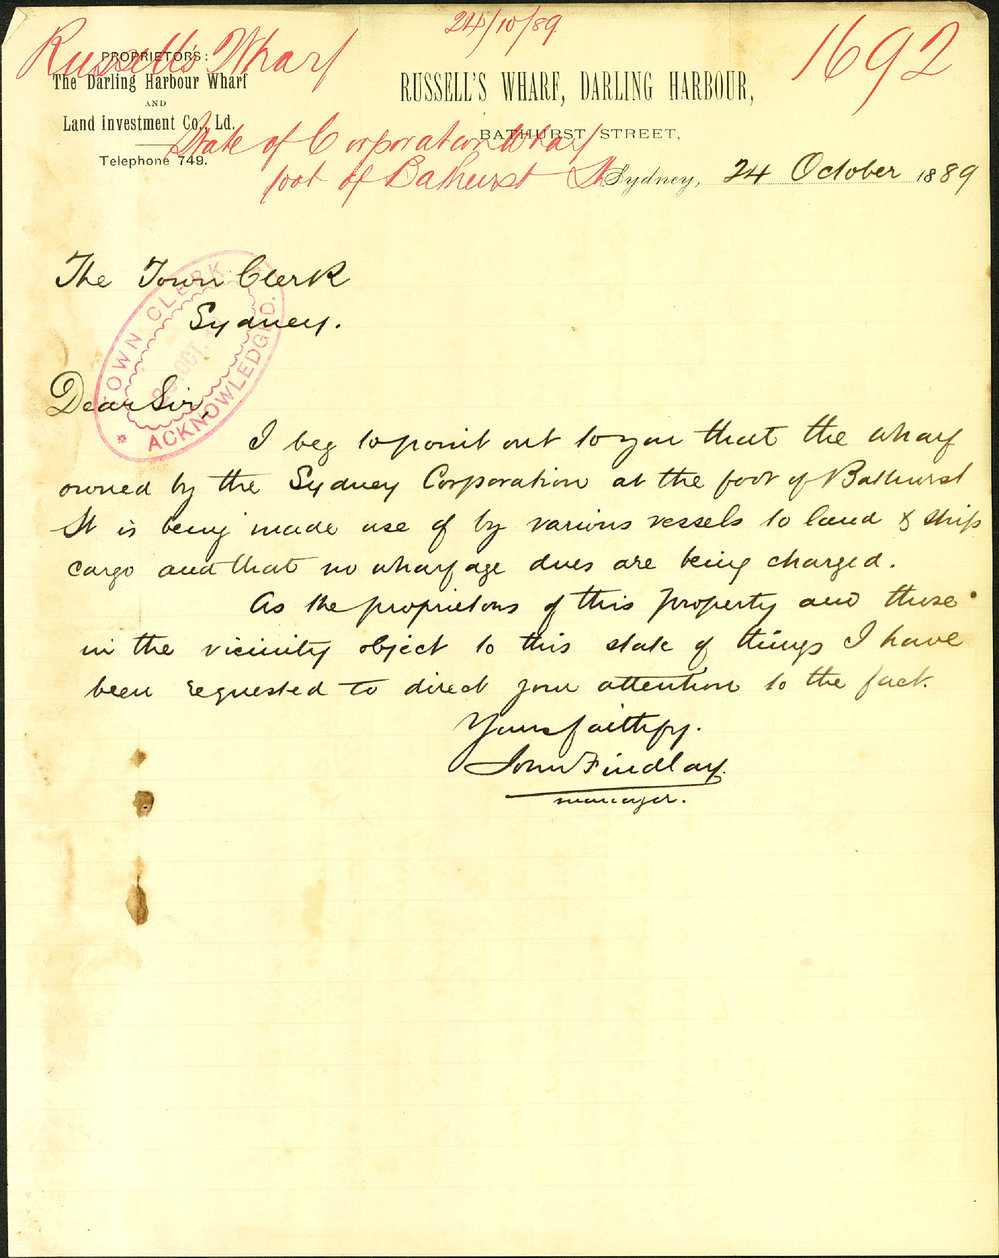 Russell's Wharf
24/10/89
1692
PROPRIETORS:
The Darling Harbour Wharf
AND
Land Investment Co., Ld.
Telephone 749.
RUSSELL'S WHARF, DARLING HARBOUR,
BATHURST STREET,
State of Corporation Wharf
foot of Bathurst St.
Sydney, 24 October 1889
The Town Clerk
Sydney.
TOWN CLERK
OCT.
ACKNOWLEDGED.
Dear Sir,
I beg to point out to you that the wharf
owned by the Sydney Corporation at the foot of Bathurst
St is being made use of by various vessels to land & ship
cargo and that no wharfage dues are being charged.
As the proprietors of this property and those
in the vicinity object to this state of things I have
been requested to direct your attention to the fact.
Yours faithfy.
John Findlay.
manager.